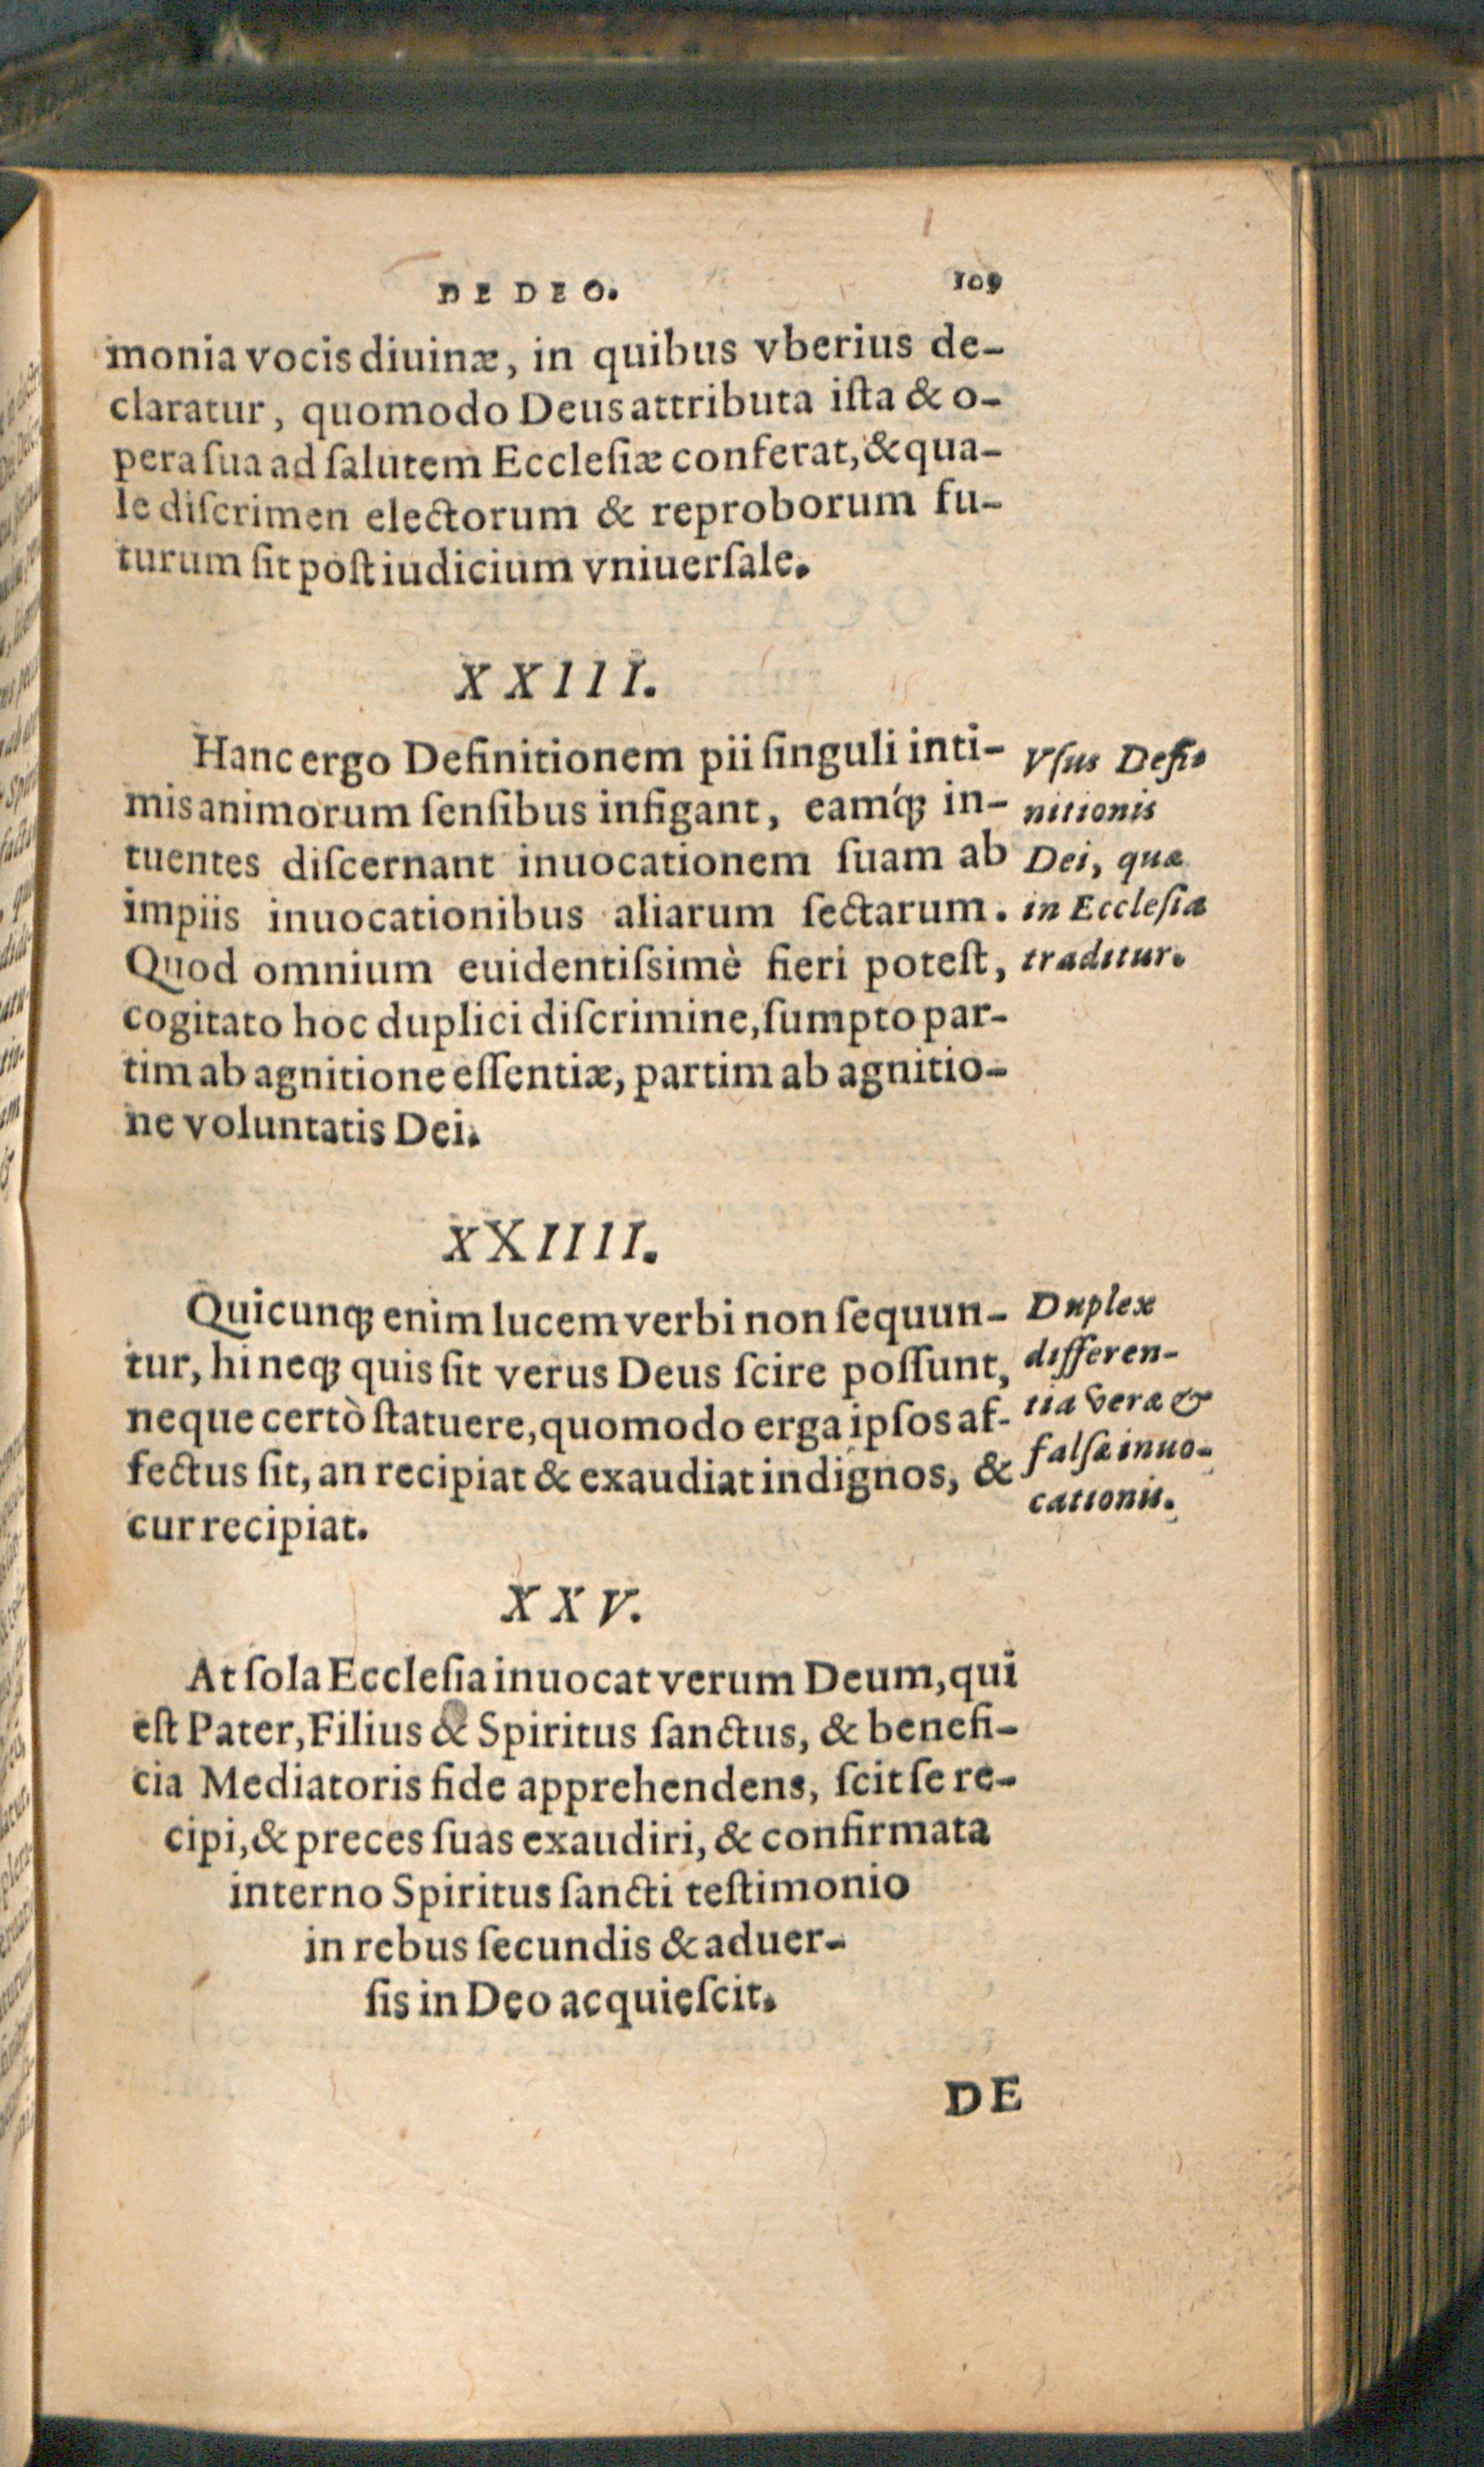 DE DEO. 109
monia vocis diuinæ, in quibus vberius de-
claratur, quomodo Deus attributa iſta & o-
pera ſua ad ſalutem Eccleſiæ conferat, & qua-
le diſcrimen electorum & reproborum fu-
turum ſit poſt iudicium vniuerſale.
XXIII.
Hanc ergo Definitionem pii ſinguli inti-
mis animorum ſenſibus infigant, eamq́; in-
tuentes diſcernant inuocationem ſuam ab
impiis inuocationibus aliarum ſectarum.
Quod omnium euidentiſsimè fieri poteſt,
cogitato hoc duplici diſcrimine, ſumpto par-
tim ab agnitione eſſentiæ, partim ab agnitio-
ne voluntatis Dei.
Vſus Defi-
nitionis
Dei, quæ
in Eccleſia
traditur.
XXIIII.
Quicunq; enim lucem verbi non ſequun-
tur, hi neq; quis ſit verus Deus ſcire poſſunt,
neque certò ſtatuere, quomodo erga ipſos af-
fectus ſit, an recipiat & exaudiat indignos, &
cur recipiat.
Duplex
differen-
tia veræ &
falſæ inuo-
cationis.
XXV.
At ſola Eccleſia inuocat verum Deum, qui
eſt Pater, Filius & Spiritus ſanctus, & benefi-
cia Mediatoris fide apprehendens, ſcit ſe re-
cipi, & preces ſuas exaudiri, & confirmata
interno Spiritus ſancti teſtimonio
in rebus ſecundis & aduer-
ſis in Deo acquieſcit.
DE